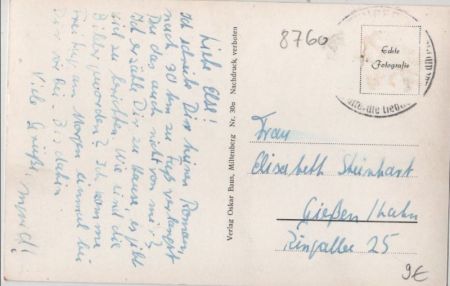 Liebe Elli!
Ich schreibe Dir keinen Roman
nach 30 km zu Fuß verlangst
Du das auch nicht von mir?
Ich erzähle Dir zu Hause, es gibt
viel zu berichten. Wie sind die
Bilder geworden? Ich komme
Freitag am Morgen einmal bei
Dir vorbei. Bis dahin
Viele Grüße,
Verlag Oskar Baus, Miltenberg Nr. 30a Nachdruck verboten
8760
Echte
Fotografie
Frau
Elisabeth Steinhart
Gießen/Lahn
Ringallee 25
9€